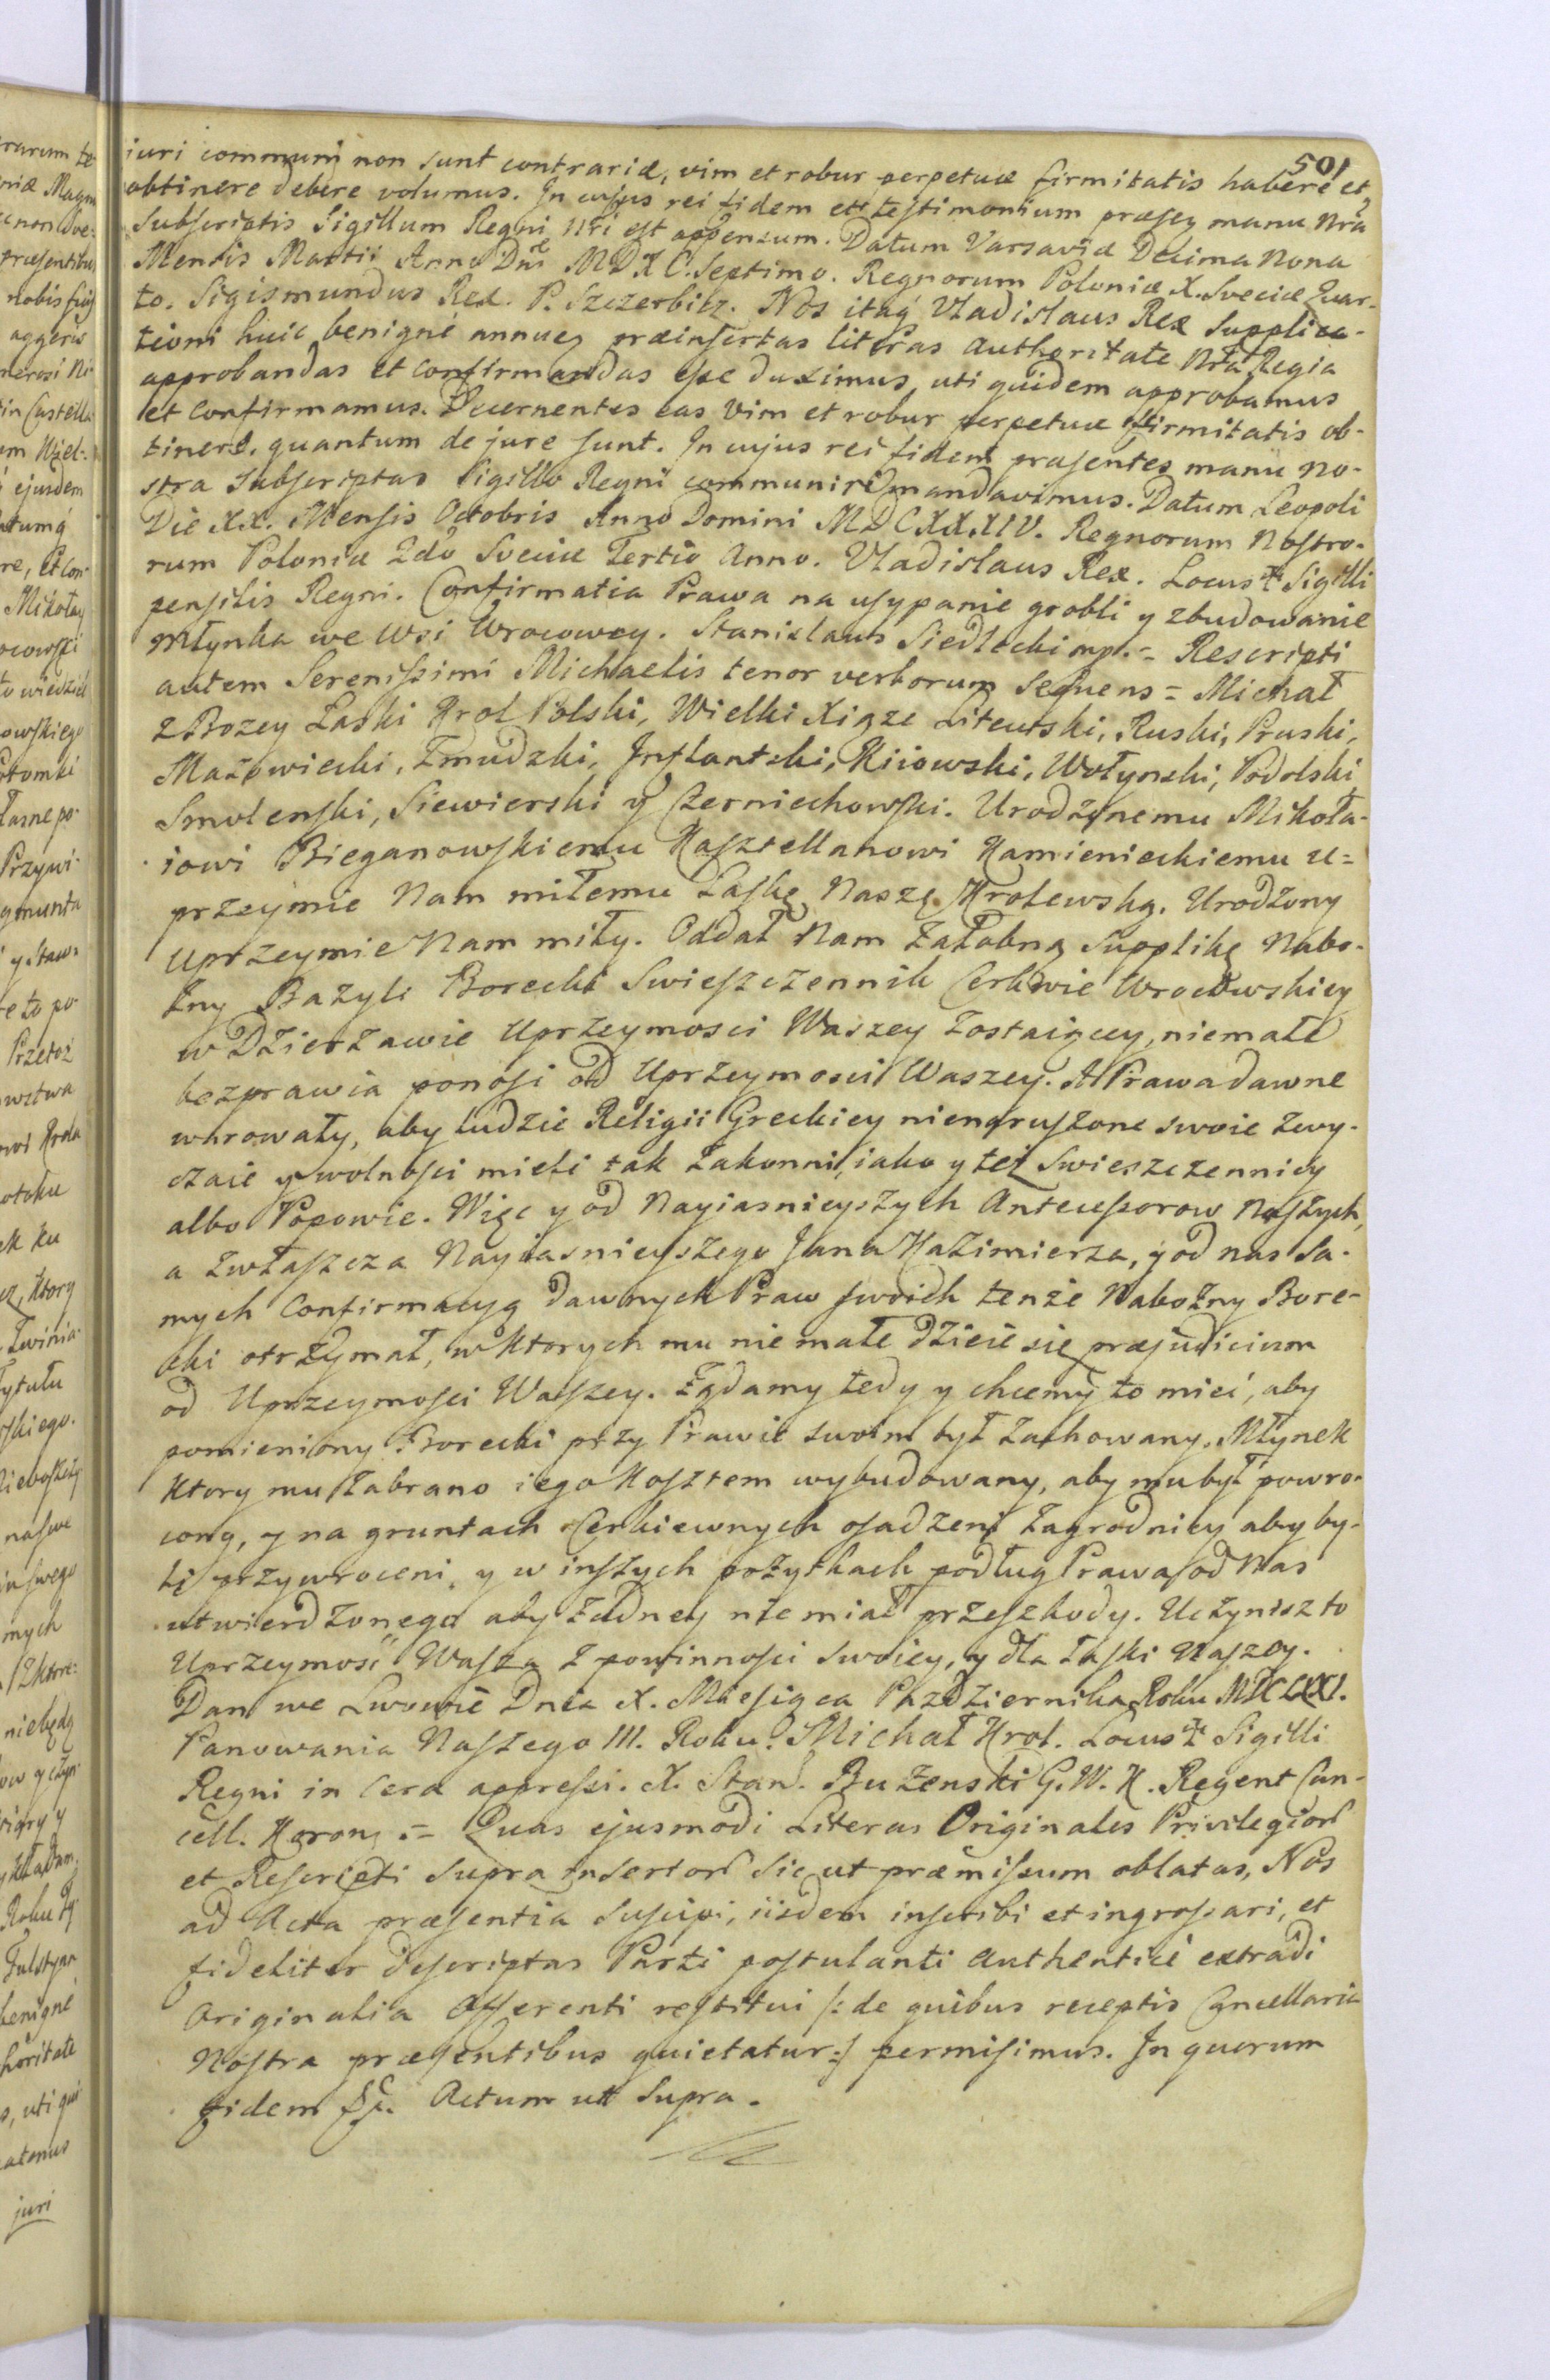 501.
iuri communi non sunt contrariæ, vim et robur perpetuæ firmitatis habere et
obtinere debere volumus. In cujus rei fidem et testimonium præsen manu Nra
Subscriptis Sigillum Regni Nri est appensum. Datum Varsaviæ Decima Nona
Mensis Martii Anno Dni MDXC. Septimo. Regnorum Poloniæ X. Sveciæ Quar-
to. Sigismundus Rex. P. Szczerbicz. Nos itaq Vladislaus Rex Supplica-
tioni huic benigné annuen præinsertas literas Authoritate Nra Regia
approbandas et Confirmandas esse duximus, uti quidem approbamus
et Confirmamus. Decernentes eas Vim et robur perpetuæ firmitatis ob-
tinere, quantum de jure sunt. In cujus rei fidem præsentes manu No-
stra Subscriptas Sigillo Regni communiri mandavimus. Datum Leopoli
Die XX. Mensis Octobris Anno Domini MDCXXXIV. Regnorum Nostro-
rum Poloniæ 2do Sveciæ Tertio Anno. Vladislaus Rex. Locus Sigilli
pensilis Regni. Confirmatia Prawa na usypanie grobli y zbudowanie
Młynka we Wsi Wrocowey. Stanislaus Siedlecki mp. = Rescripti
autem Serenissimi Michaelis tenor verborum Sequens = Michał
z Bozey Łaski Krol Polski, Wielki Xiąze Litewski, Ruski, Pruski,
Mazowiecki, Zmudzki, Inflantski, Kiiowski, Wołynski, Podolski,
Smolenski, Siewierski y Czerniechowski. Urodzonemu Mikoła-
iowi Bieganowskiemu Kasztellanowi Kamienieckiemu u=
przeymie Nam miłemu Łaskę Naszę Krolewską. Urodzony
Uprzeymie Nam miły. Oddał Nam Załobną Supplikę Nabo-
żny Bazyli Borecki Swieszczennik Cerkwie Wrocowskiey
w Dzierżawie Uprzeymosci Waszey Zostaiącey, niemałe
bezprawia ponosi od Uprzeymosci Waszey. A Prawa dawne
warowały, aby ludzie Religii Greckiey nienaruszone swoie zwy-
czaie y wolnosci mieli tak Zakonni, iako y też Swieszczennicy
albo Popowie. Więc y od Nayiasnieyszych Antecessorow Naszych,
a zwłaszcza Nayiasnieyszego Jana Kazimierza, y od nas Sa-
mych Confirmacyą dawnych Praw swoich tenże Nabożny Bore-
cki otrzymał, w ktorych mu nie małe dzieie się præjudicium
od Uprzeymosci Waszey. Ządamy tedy y chcemy to mieć, aby
pomieniony Borecki przy Prawie swoim był zachowany. Młynek
ktory mu zabrano iego Kosztem wybudowany, aby mu był powro-
cony, y na gruntach Cerkiewnych osadzeni Zagrodnicy aby by-
li przywroceni, y w inszych pożytkach podług Prawa od Nas
utwierdzonego aby żadney nie miał przeszkody. Uczynisz to
Uprzeymość Wasza z powinnosci swoiey, y dla Łaski Naszey.
Dan we Lwowie Dnia X. Miesiąca Pazdziernika Roku MDCLXXI.
Panowania Naszego III. Roku. Michał Krol. Locus Sigilli
Regni in Cera appressi. X. Stan. Buzenski G. W. K. Regent Can-
cell. Koron. = Quas ejusmodi Literas Originales Privilegior
et Rescripti Supra insertor Sic ut præmissum oblatas, Nos
ad Acta præsentia Suscipi, iisdem inscribi et ingrossari, et
fideliter descriptas Parti postulanti authenticé extradi
Originalia Offerenti restitui /: de quibus receptis Cancellaria
Nostra præsentibus quietatur :/ permisimus. In quorum
fidem &c. Actum ut Supra.